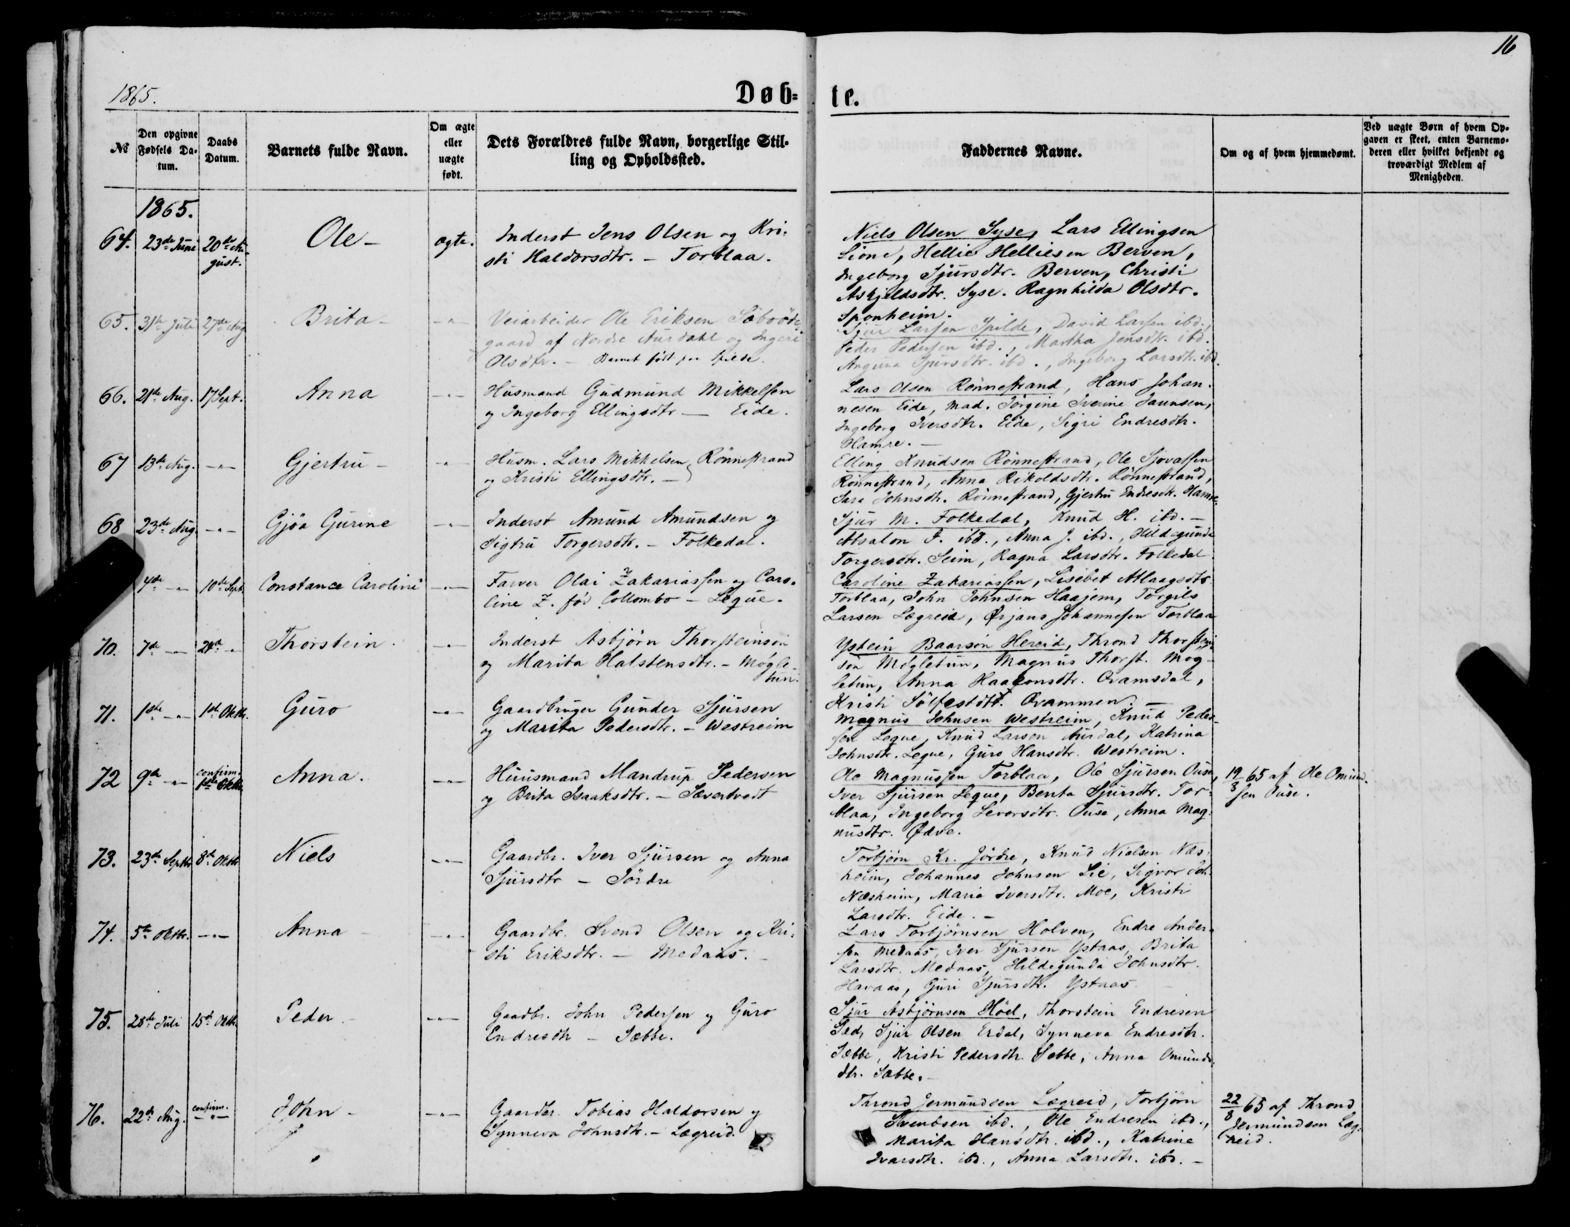 16
1865.
Døb=
te.
№
Den opgivne
Fødsels Da-
tum.
Daabs
Datum.
Barnets fulde Navn.
Om ægte
eller
uægte
født.
Dets Forældres fulde Navn, borgerlige Stil-
ling og Opholdssted.
Faddernes Navne.
Om og af hvem hjemmedøbt.
Ved uægte Børn af hvem Op-
gaven er skeet, enten Barnemo-
deren eller hvilket bekjendt og
troværdigt Medlem af
Menigheden.
1865.
64. 23de Juni 20de Au-
gust.
Ole -
ægte.
Inderst Jens Olsen og Kri-
sti Haldorsdtr. - Torblaa.
Niels Olsen Syse, Lars Ellingsen
Lione, Hellie Helliesen Berven,
Ingeborg Sjursdtr. Berven, Christi
Askjeldsdtr. Syse. Ragnhilda Olsdtr.
Sponheim.
65. 31te Juli 27de Aug
Brita -
Veiarbeider Ole Eriksen
gaard af Nordre Aurdahl og Ingeri
Olsdtr. - Barnet født paa Spilde.
Sjur Larsen Spilde, David Larsen ibd.,
Peder Pedersen ibd., Martha Jensdtr. ibd.
Sjursdtr. ibd., Ingeborg Larsdtr. ibd.
66. 21de Aug. 17 Sept.
Anna
Husmand Gudmund Mikkelsen
og Ingeborg Ellingsdtr - Eide.
Lars Olsen Rønnestrand, Hans Johan-
nesen Eide, Mad. Jørgine Iverine Jaunsen,
Ingeborg Iversdtr. Eide, Sigri Endresdtr.
Hamre. -
67 13de Aug. -"-
Gjertru -
Husm. Lars Mikkelsen Rønnestrand
og Kristi Ellingsdtr. -
Elling Knudsen Rønnestrand, Ole Sjovassen
Rønnestrand, Anna Rikoldsdtr. Rønnestrand,
Sara Johnsdtr. Rønnestrand, Gjertru Endresdtr. Hamre.
68 23de Aug -"-
Gjøa Gurine
Inderst Amund Amundsen og
Sigtru Torgersdtr. - Folkedal.
Sjur M. Folkedal, Knud H. ibd. -
Absalon J. ibd., Anna J. ibd., Hildegunda
Torgersdtr. Seim, Ragna Larsdtr. Folkedal
7de -"- 10de Sept.
Constance Caroline
Farver Olai Zakariassen og Caro-
line Z. fød Collombo - Legue.
Caroline Zakariassen, Lisebet Aslaagsdtr
Torblaa, John Johnsen Haajem, Torgils
Larsen Lægreid, Ørjans Johannesen Torblaa
70. 7de -"- 24de -"-
Thorstein.
Inderst Asbjørn Thorsteinsøn
og Marita Halstensdtr. - Mogle-
tun.
Ystein Baarsøn Hereid, Thrond Thorstein-
søn Mogletun, Magnus Thorst. Mog-
letun, Anna Haakonsdtr. Qvamsdal,
Kristi Sølfestdtr. Qvammen. -
71. 1ste -"- 1ste Oktbr.
Guro
Gaardbruger Gunder Sjursen
og Marita Pedersdtr. - Westreim
Magnus Johnsen Westreim, Knud Peder-
sen Legue, Knud Larsen Aurdal, Katrina
Johnsdtr. Legue, Guro Hansdtr. Westreim.
72 9de -"- confirm.
1ste Oktbr.
Anna.
Huusmand Mandrup Pedersen
og Brita Isaaksdtr. - Sævertvedt
Ole Magnussen Torblaa, Ole Sjursen Ouse,
Iver Sjursen Legue, Benta Sjursdtr. Tor-
blaa, Ingeborg Leversdtr. Ouse, Anna Mag-
nusdtr. Ødve.
19/8 65 af Ole Omund-
sen Ouse.
73. 23de Septbr 8de Oktb
Niels
Gaardbr. Iver Sjursen og Anna
Sjursdtr - Jørdre
Torbjørn Kr. Jørdre, Knud Nielsen Næs-
heim, Johannes Johnsen Lie, Sigvor Joh.
Næsheim, Maria Iversdtr. Moe, Kristi
Larsdtr. Eide. -
74. 5te Oktbr. -"-
Anna
Gaardbr. Svend Olsen og Kri-
sti Eriksdtr. - Medaas.
Lars Torbjørnsen Holven, Endre Ander-
sen Medaas, Iver Sjursen Ystaas, Brita
Larsdtr. Medaas, Hildegunda Johnsdtr.
Havaas, Guri Sjursdtr. Ystaas
75. 28de Juli 15de Oktb.
Peder
Gaardbr. John Pedersen og Guro
Endresdtr - Sæbbe.
Sjur Asbjørnsen Hoel, Thorstein Endresen
Sjur Olsen Erdal, Synneva Endresdtr.
Sæbbe, Kristi Pedersdtr Sæbbe, Anna Omunds-
dtr. Sæbbe. -
76. 22de Aug. confirm.
-"-
John -
Gaardbr. Tobias Haldorsen og
Synneva Johnsdtr. - Lægreid.
Thrond Jermundsen Lægreid, Torbjørn
Svendsen ibd., Ole Endresen ibd.,
Marita Hansdtr. ibd., Katrine
Ivarsdtr. ibd., Anna Larsdtr. ibd. -
22/8 65 af Thrond
Jermundsen Læg-
reid.